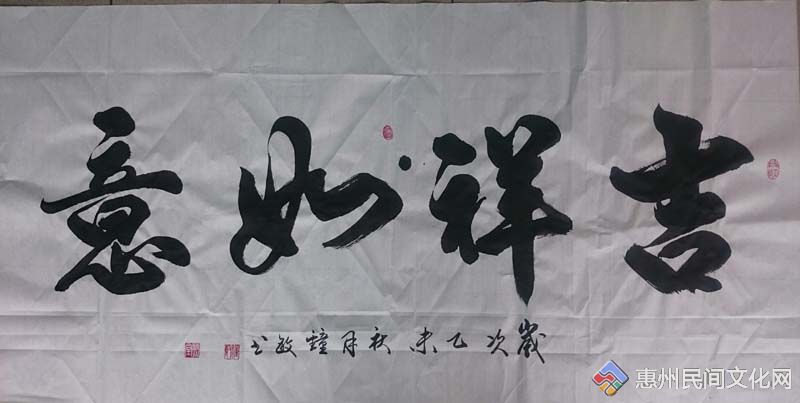 吉祥如意
歲次乙未秋月鐘敏书
惠州民间文化网